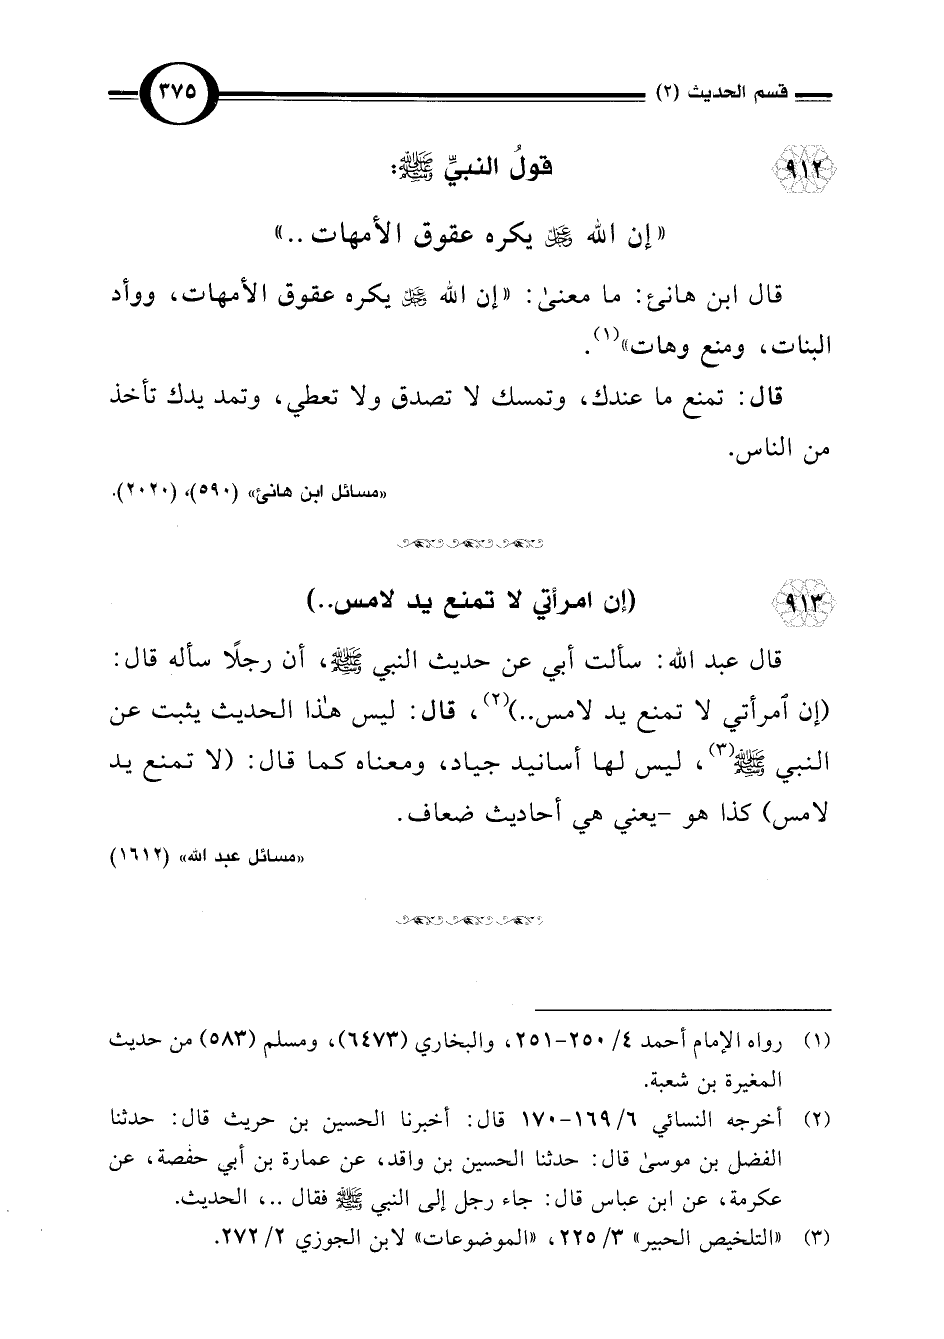 قسم الحديث (٢) ٣٧٥
٩١٢ قولُ النبيِّ ﷺ:
«إن الله ﷻ يكره عقوق الأمهات ..»
قال ابن هانئ: ما معنىٰ: «إن الله ﷻ يكره عقوق الأمهات، ووأد
البنات، ومنع وهات»(١).
قال: تمنع ما عندك، وتمسك لا تصدق ولا تعطي، وتمد يدك تأخذ
من الناس.
«مسائل ابن هانئ» (٥٩٠)، (٢٠٢٠).
٩١٣ (إن امرأتي لا تمنع يد لامس..)
قال عبد الله: سألت أبي عن حديث النبي ﷺ، أن رجلًا سأله قال:
(إن ٱمرأتي لا تمنع يد لامس..)(٢)، قال: ليس هٰذا الحديث يثبت عن
النبي ﷺ(٣)، ليس لها أسانيد جياد، ومعناه كما قال: (لا تمنع يد
لامس) كذا هو -يعني هي أحاديث ضعاف.
«مسائل عبد الله» (١٦١٢)
(١) رواه الإمام أحمد ٤/ ٢٥٠-٢٥١، والبخاري (٦٤٧٣)، ومسلم (٥٨٣) من حديث
المغيرة بن شعبة.
(٢) أخرجه النسائي ٦/ ١٦٩-١٧٠ قال: أخبرنا الحسين بن حريث قال: حدثنا
الفضل بن موسىٰ قال: حدثنا الحسين بن واقد، عن عمارة بن أبي حفصة، عن
عكرمة، عن ابن عباس قال: جاء رجل إلى النبي ﷺ فقال ..، الحديث.
(٣) «التلخيص الحبير» ٣/ ٢٢٥، «الموضوعات» لابن الجوزي ٢/ ٢٧٢.